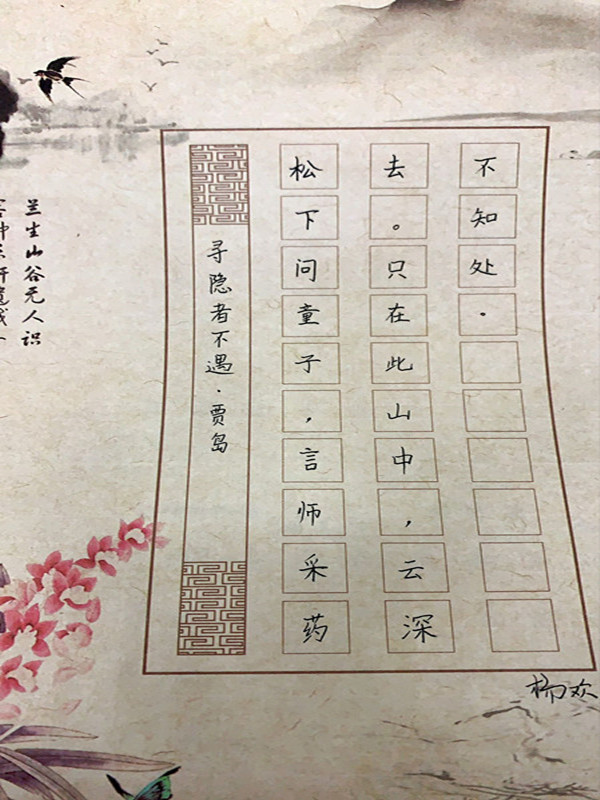 寻隐者不遇·贾岛
松下问童子,言师采药
去。只在此山中,云深
不知处.
兰生山谷无人识
欢